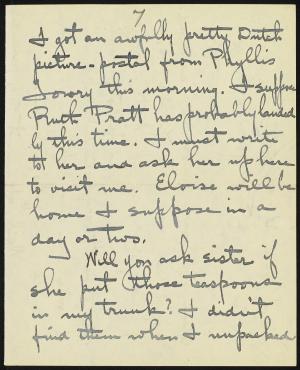 7
I got an awfully pretty Dutch
picture-postal from Phyllis
this morning. I suppose
Ruth Pratt has probably landed
by this time. I must write
to her and ask her up here
to visit me. Eloise will be
home I suppose in a
day or two.
Will you ask sister if
she put those teaspoons
in my trunk? I didn't
find them when I unpacked